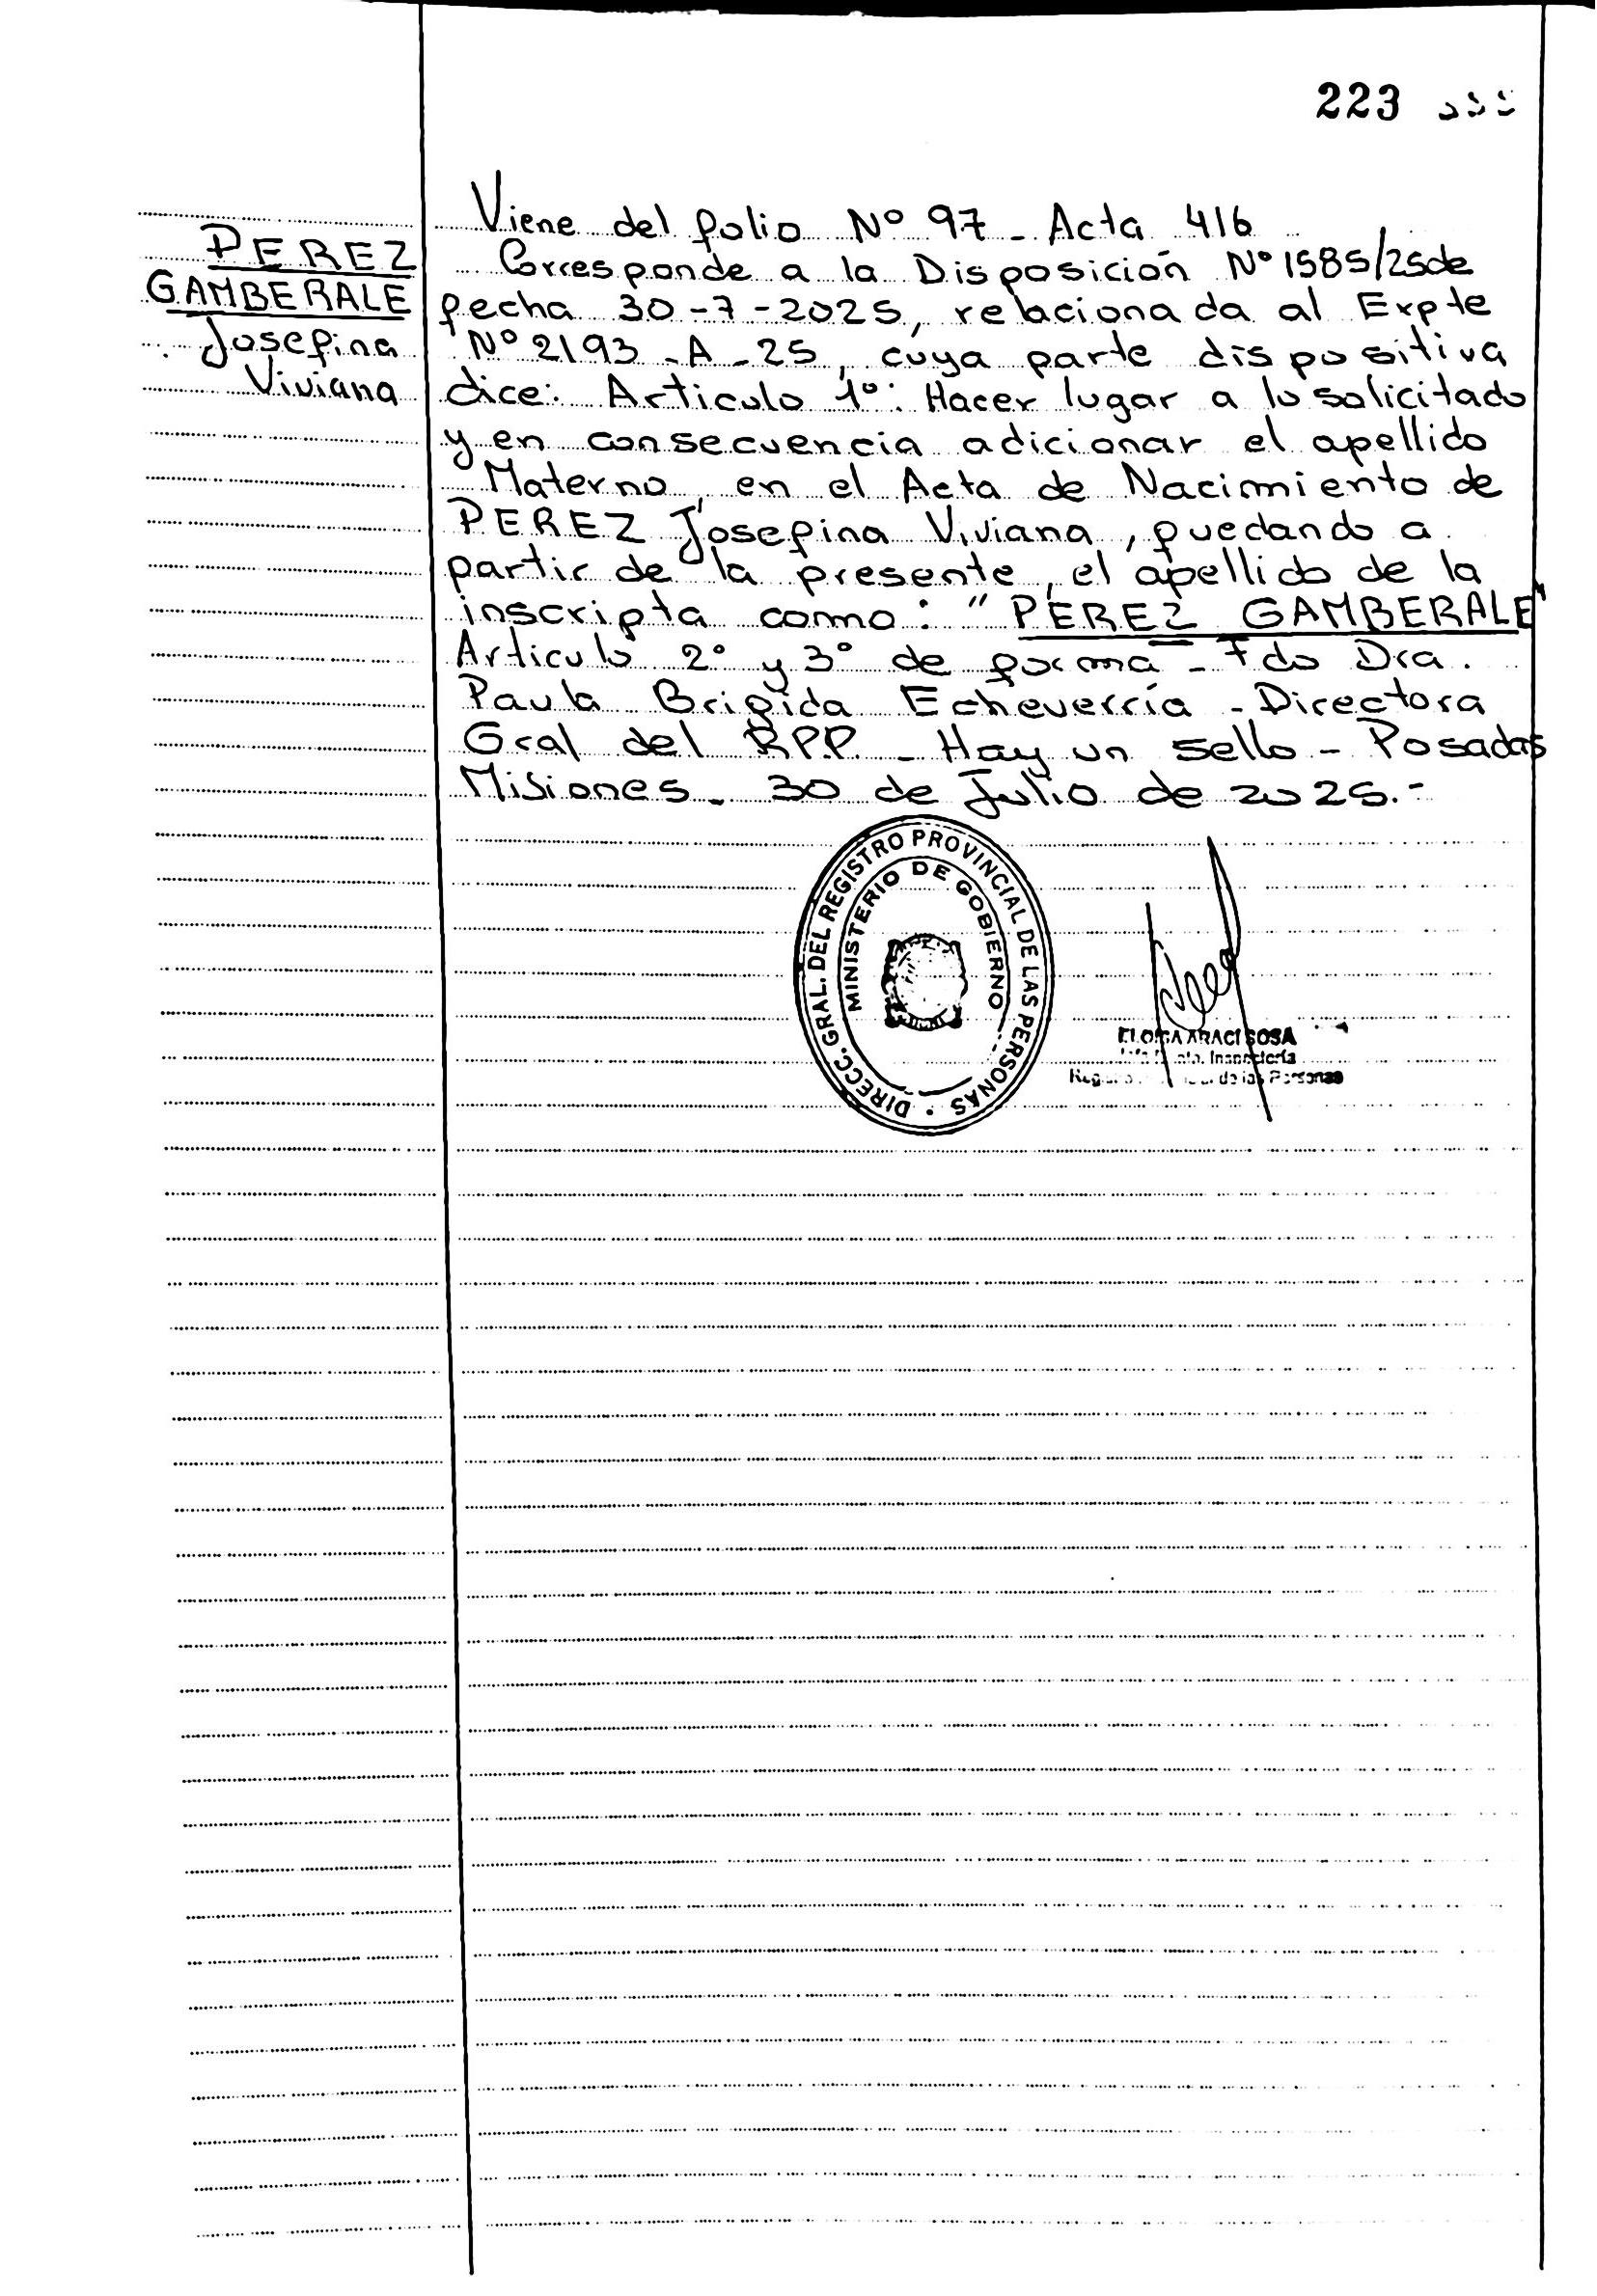 223
PEREZ
GAMBERALE
Josefina
Viviana
Viene del folio Nº 97 - Acta 416
Corresponde a la Disposición Nº 1585/25 de
fecha 30-7-2025, relacionada al Expte
Nº 2193 - A - 25, cuya parte dispositiva
dice: Articulo 1º: Hacer lugar a lo solicitado
y en consecuencia adicionar el apellido
Materno, en el Acta de Nacimiento de
PEREZ Josefina Viviana, quedando a
partir de la presente, el apellido de la
inscripta como: "PEREZ GAMBERALE"
Articulo 2º y 3º de forma - Fdo Dra.
Paula Brigida Echeverría - Directora
Gral del RPP - Hay un sello - Posadas
Misiones - 30 de Julio de 2025.-
DIRECC. GRAL. DEL REGISTRO PROVINCIAL DE LAS PERSONAS
MINISTERIO DE GOBIERNO
ELOISA ARACI SOSA
Inspectoría
de las Personas